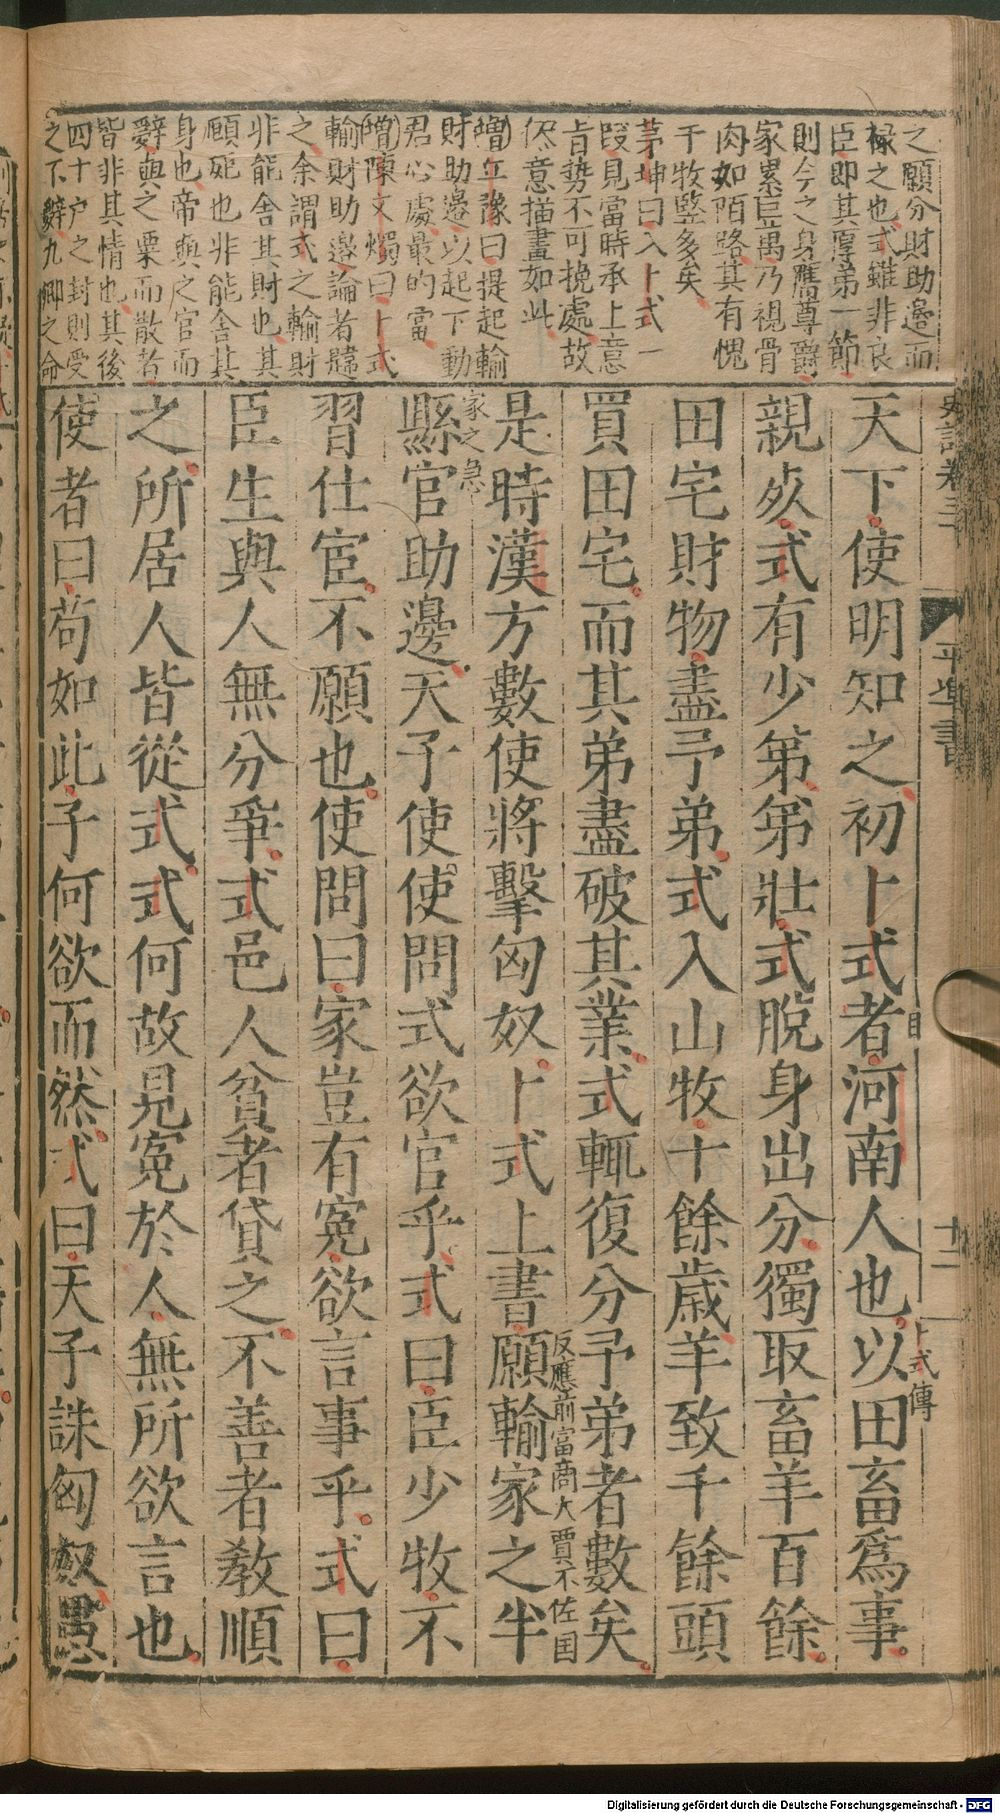 之願分財助邊而
祿之也式雖非良
臣即其厚弟一節
則今之身膺尊爵
家累巨萬乃視骨
肉如陌路其有愧
于牧豎多矣
茅坤曰入卜式一
段見當時承上意
旨勢不可挽處故
恁意描畫如此
曰提起輸
財助邊以起下動
君心處最的當
陳文燭曰卜式
輸財助邊論者韙
之余謂式之輸財
非能舍其財也其
願死也非能舍其
身也帝與之官而
辭與之粟而散者
皆非其情也其後
四十戶之封則受
之不辭九卿之命
史記卷三十
平準書
十二
卜式傳
天下使明知之初卜式者河南人也以田畜為事
目
親死式有少弟弟壯式脫身出分獨取畜羊百餘
田宅財物盡予弟式入山牧十餘歲羊致千餘頭
買田宅而其弟盡破其業式輒復分予弟者數矣
反應前富商大賈不佐国
是時漢方數使將擊匈奴卜式上書願輸家之半
家之急
縣官助邊天子使使問式欲官乎式曰臣少牧不
習仕宦不願也使問曰家豈有冤欲言事乎式曰
臣生與人無分爭式邑人貧者貸之不善者教順
之所居人皆從式式何故見冤於人無所欲言也
使者曰苟如此子何欲而然式曰天子誅匈奴愚
Digitalisierung gefördert durch die Deutsche Forschungsgemeinschaft - DFG